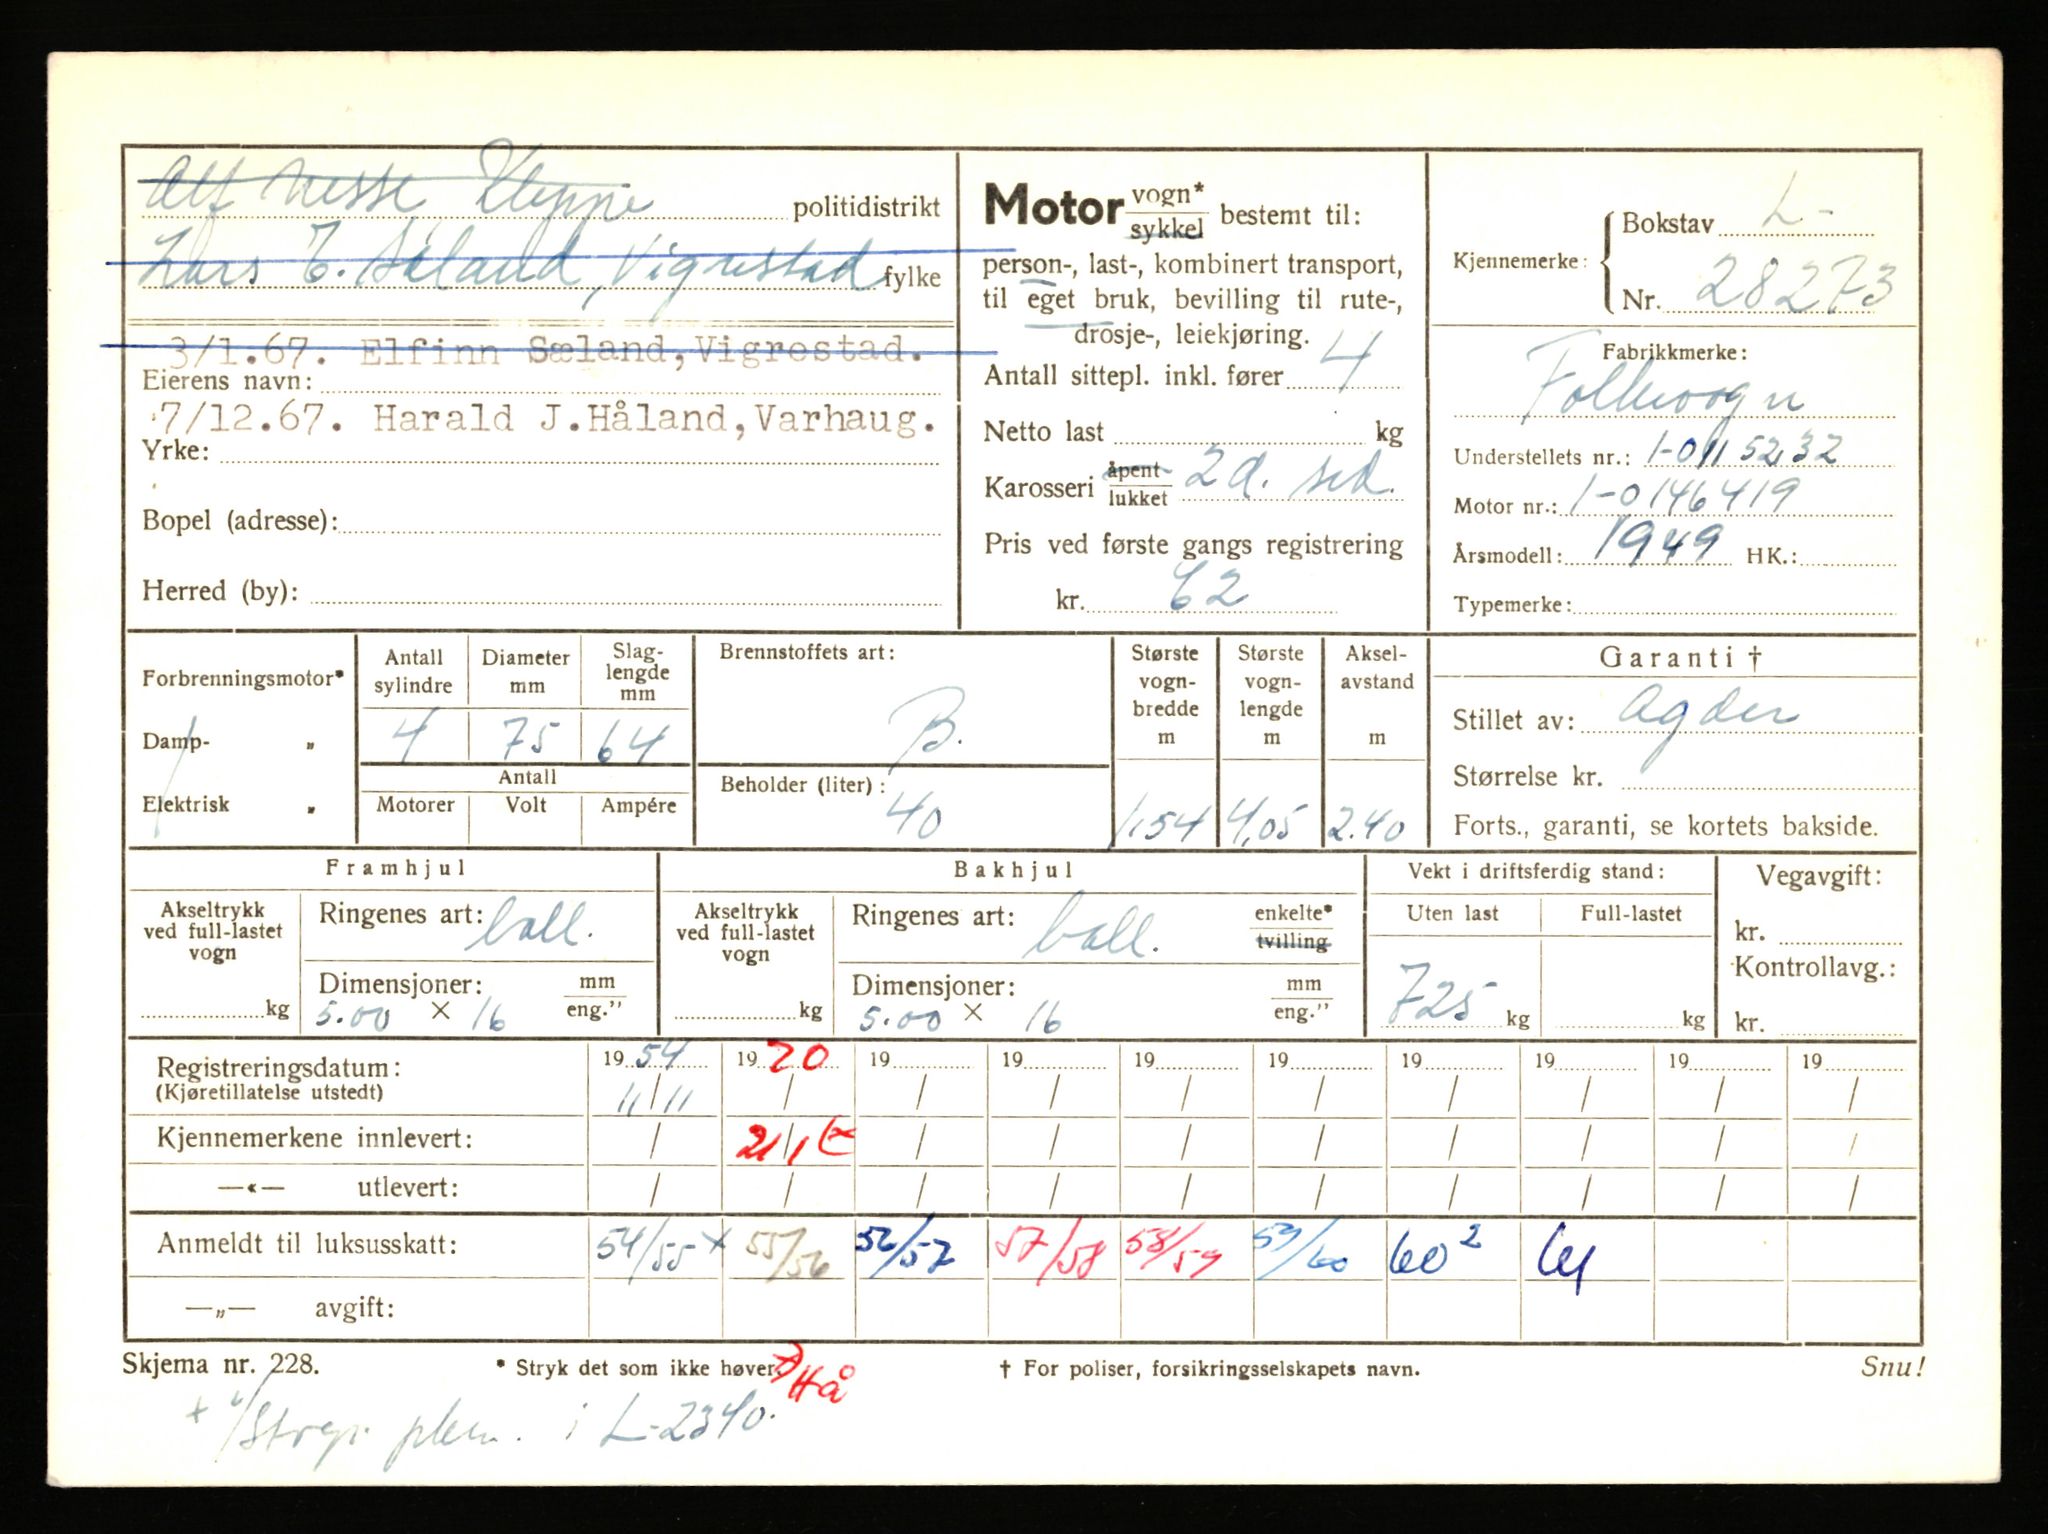 Alf Nesse Kleppe politidistrikt
Lars T. Sæland, Vigrestad fylke
3/1.67. Elfinn Sæland, Vigrestad.
Eierens navn:
7/12.67. Harald J.Håland, Varhaug.
Yrke:
Bopel (adresse):
Herred (by):
Motor vogn*/sykkel bestemt til:
person-, last-, kombinert transport,
til eget bruk, bevilling til rute-,
drosje-, leiekjøring.
Antall sittepl. inkl. fører 4
Netto last kg
Karosseri åpent/lukket 2d. sed.
Pris ved første gangs registrering
kr. 62
Kjennemerke: Bokstav L-
Nr. 28273
Fabrikkmerke:
Folkevogn
Understellets nr.: 1-0115232
Motor nr.: 1-0146419
Årsmodell: 1949 HK.:
Typemerke:
Forbrenningsmotor*
Damp- „
Elektrisk „
Antall sylindre Diameter mm Slaglengde mm
4 75 64
Antall
Motorer Volt Ampére
Brennstoffets art:
B.
Beholder (liter):
40
Største vognbredde m
1,54
Største vognlengde m
4,05
Akselavstand m
2.40
Garanti †
Stillet av: Agder
Størrelse kr.
Forts., garanti, se kortets bakside.
Framhjul
Akseltrykk ved full-lastet vogn
kg
Ringenes art: ball.
Dimensjoner: mm
5.00 × 16 eng.”
Bakhjul
Akseltrykk ved full-lastet vogn
kg
Ringenes art: ball. enkelte*
tvilling
Dimensjoner: mm
5.00 × 16 eng.”
Vekt i driftsferdig stand:
Uten last Full-lastet
725 kg kg
Vegavgift:
kr.
Kontrollavg.:
kr.
Registreringsdatum: 19 54 19 70 19 19 19 19 19 19 19 19
(Kjøretillatelse utstedt) 11/11 / / / / / / / / /
Kjennemerkene innlevert: / 21/1 / / / / / / / /
—«— utlevert: / / / / / / / / / /
Anmeldt til luksusskatt: 54/55 x 55/56 56/57 57/58 58/59 59/60 60² 61
—„— avgift:
Skjema nr. 228. * Stryk det som ikke høver. Hå † For poliser, forsikringsselskapets navn. Snu!
i L-2340.